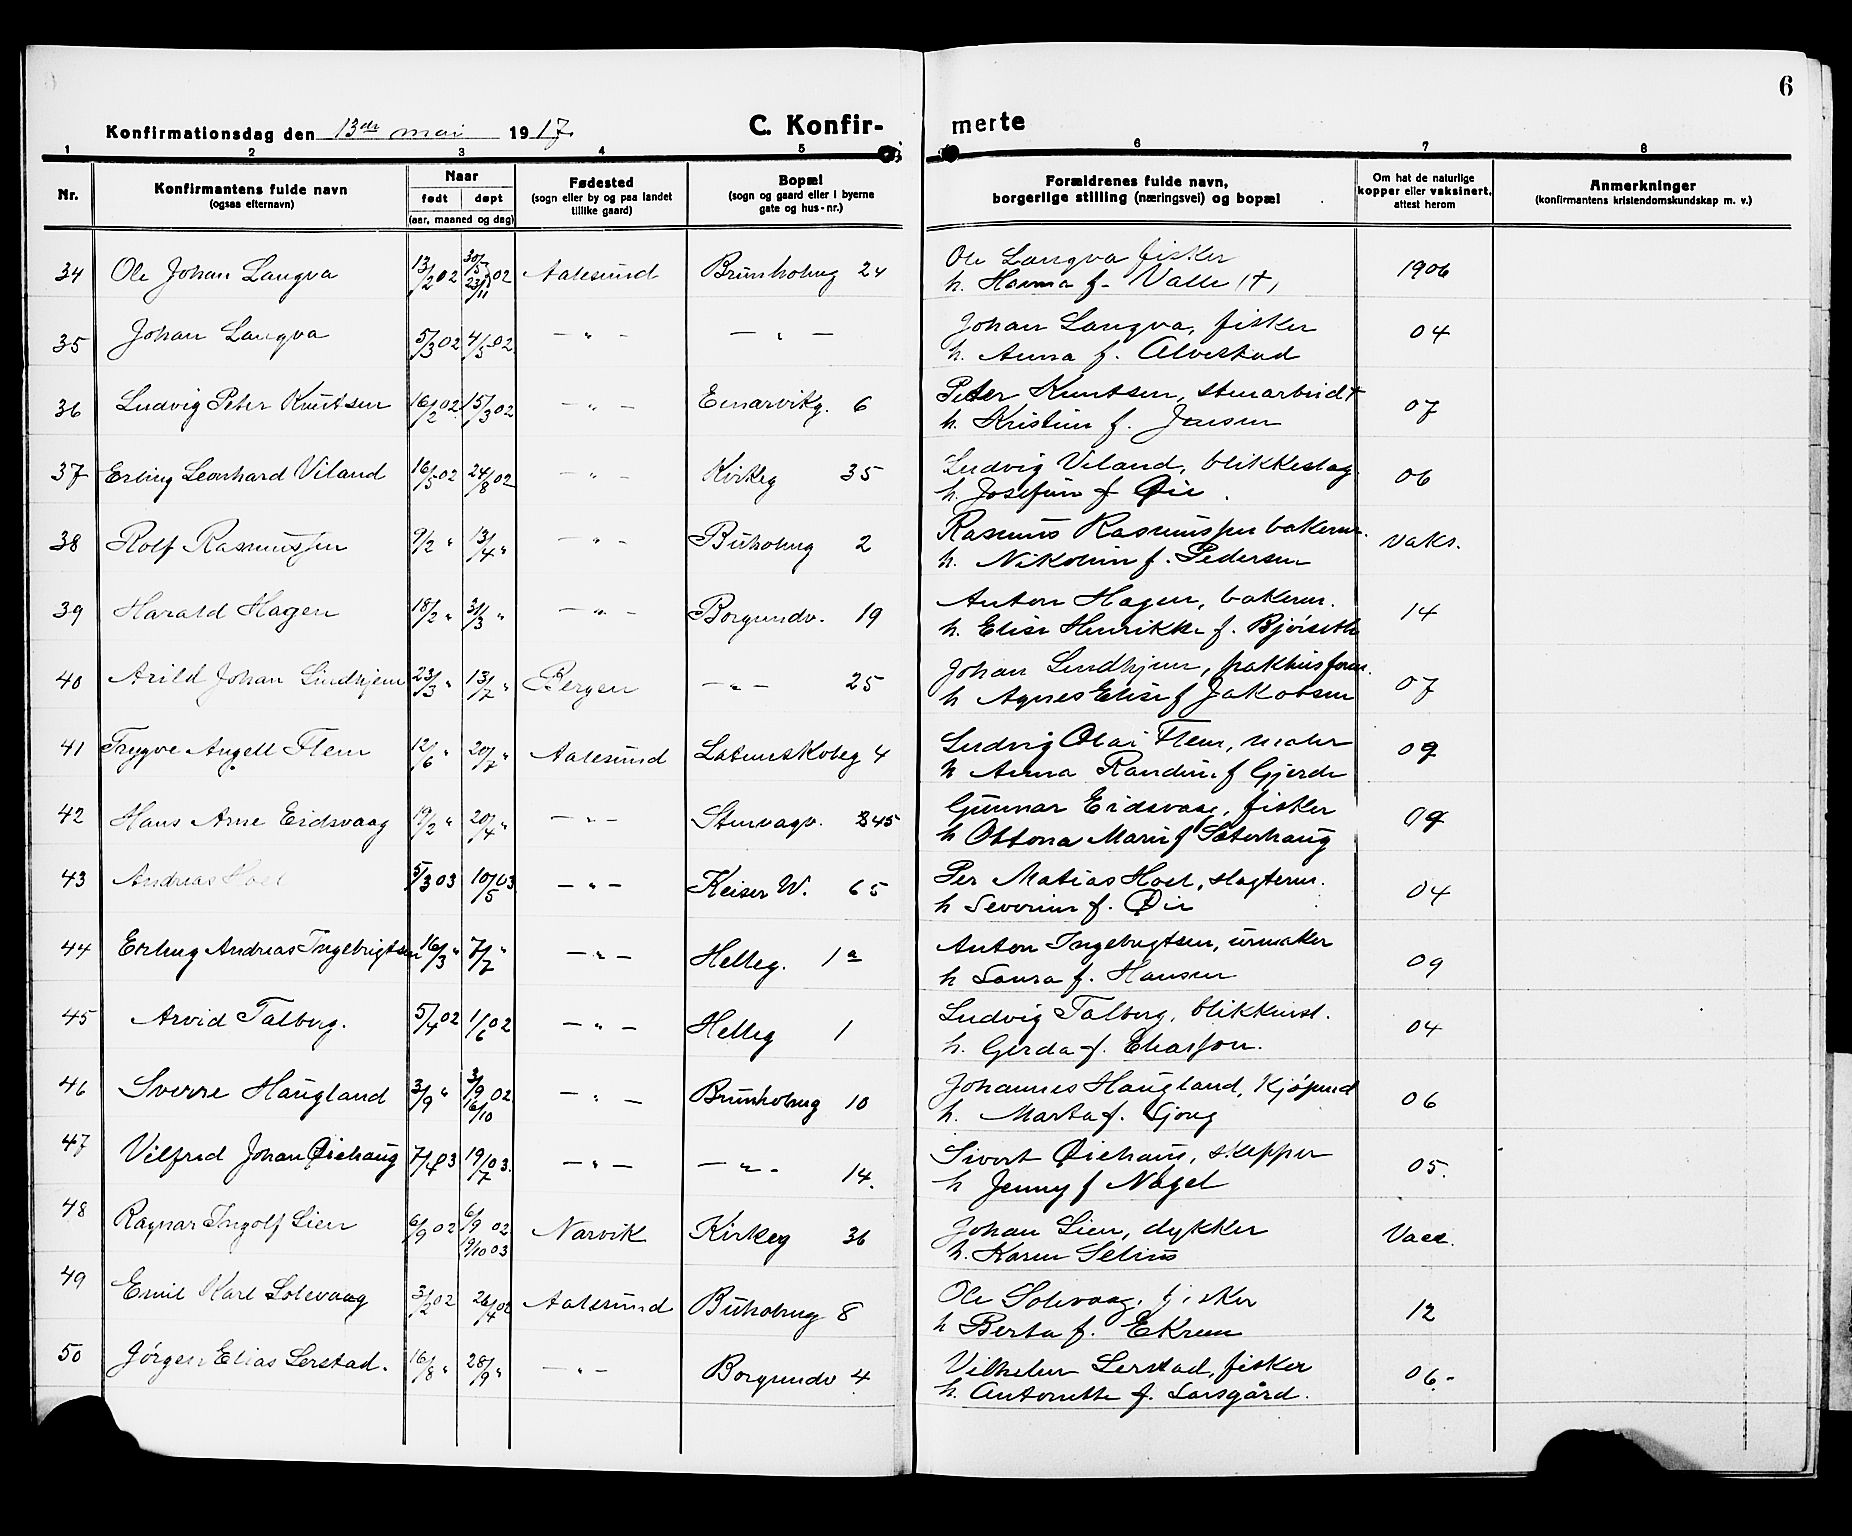 6
Konfirmationsdag den 13de mai 1917.
C. Konfirmerte
1 2 3 4 5 6 7 8
Nr.
Konfirmantens fulde navn
(ogsaa efternavn)
Naar
født døpt
(aar, maaned og dag)
Fødested
(sogn eller by og paa landet
tillike gaard)
Bopæl
(sogn og gaard eller i byerne
gate og hus-nr.)
Forældrenes fulde navn,
borgerlige stilling (næringsvei) og bopæl
Om hat de naturlige
kopper eller vaksinert,
attest herom
Anmerkninger
(konfirmantens kristendomskundskap m. v.)
34 Ole Johan Langva 13/2 02 30/5 23/11 02 Aalesund Brunholmg 24 Ole Langva fisker 1906
h. Hanna f. Valle (†)
35 Johan Langva 5/3 02 4/5 02 — " — — " — Johan Langva, fisker 04
h. Anna f. Alvestad
36 Ludvig Peter Knutsen 16/2 02 15/3 02 — " — Einarvikg. 6 Peter Knutsen, stenarbeid 07
h. Kristine f. Jensen
37 Erling Leonhard Viland 16/5 02 24/8 02 — " — Kirkeg 35 Ludvig Viland, blikkeslag. 06
h. Josefine f Øie
38 Rolf Rasmussen 9/2 " 13/4 " — " — Buholmg 2 Rasmus Rasmussen bakerm. vaks.
h. Nikoline f. Pedersen
39 Harald Hagen 18/2 " 31/3 " — " — Borgundv. 19 Anton Hagen, bakerm. 14
h. Elise Henrikke f. Bjørseth
40 Arild Johan Lindhjem 23/3 " 13/7 " Bergen — " — 25 Johan Lindhjem, pakhusform. 07
h Agnes Elise f Jakobsen
41 Trygve Angell Flem 12/6 " 20/7 " Aalesund Latinskoleg 4 Ludvig Olai Flem, maler 09
h Anna Randine f Gjerde
42 Hans Arne Eidsvaag 19/2 " 20/4 " — " — Stenvagv. 845 Gunnar Eidsvaag, fisker 09
h Ottona Marie f Sæterhaug
43 Andreas Hoel 5/3 03 10/5 03 — " — Keiser W. 65 Per Matias Hoel, slagterm. 04
h Severine f. Øie
44 Erling Andreas Ingebrigtsen 16/3 " 7/7 " — " — Helleg. 1a Anton Ingebrigtsen, urmaker 09
h Laura f. Hansen
45 Arvid Talberg. 5/4 02 1/6 02 — " — Helleg 1 Ludvig Talberg, blikkensl. 04
h. Gerda f. Eliasson.
46 Sverre Haugland 3/9 " 3/9 16/10 02 — " — Brunholmg 10 Johannes Haugland, kjøpmd 06
h. Marta f. Gjong
47 Vilfred Johan Øiehaug 7/4 03 19/7 03. — " — — " — 14. Sivert Øiehaug, skipper 05.
h Jenny f Nagel
48 Ragnar Ingolf Lien 6/9 02 6/9 02 19/10 03 Narvik Kirkeg 36 Johan Lien, dykker Vacc.
h. Karen Selius
49 Emil Karl Solevaag 3/2 02 26/4 02 Aalesund Buholmg 8 Ole Solevaag, fisker 12
h Berta f. Ekrem
50 Jørgen Elias Lerstad. 16/8 " 28/9 " — " — Borgundv 4 Vilhelm Lerstad, fisker 06.-
h. Antonette f. Larsgård.